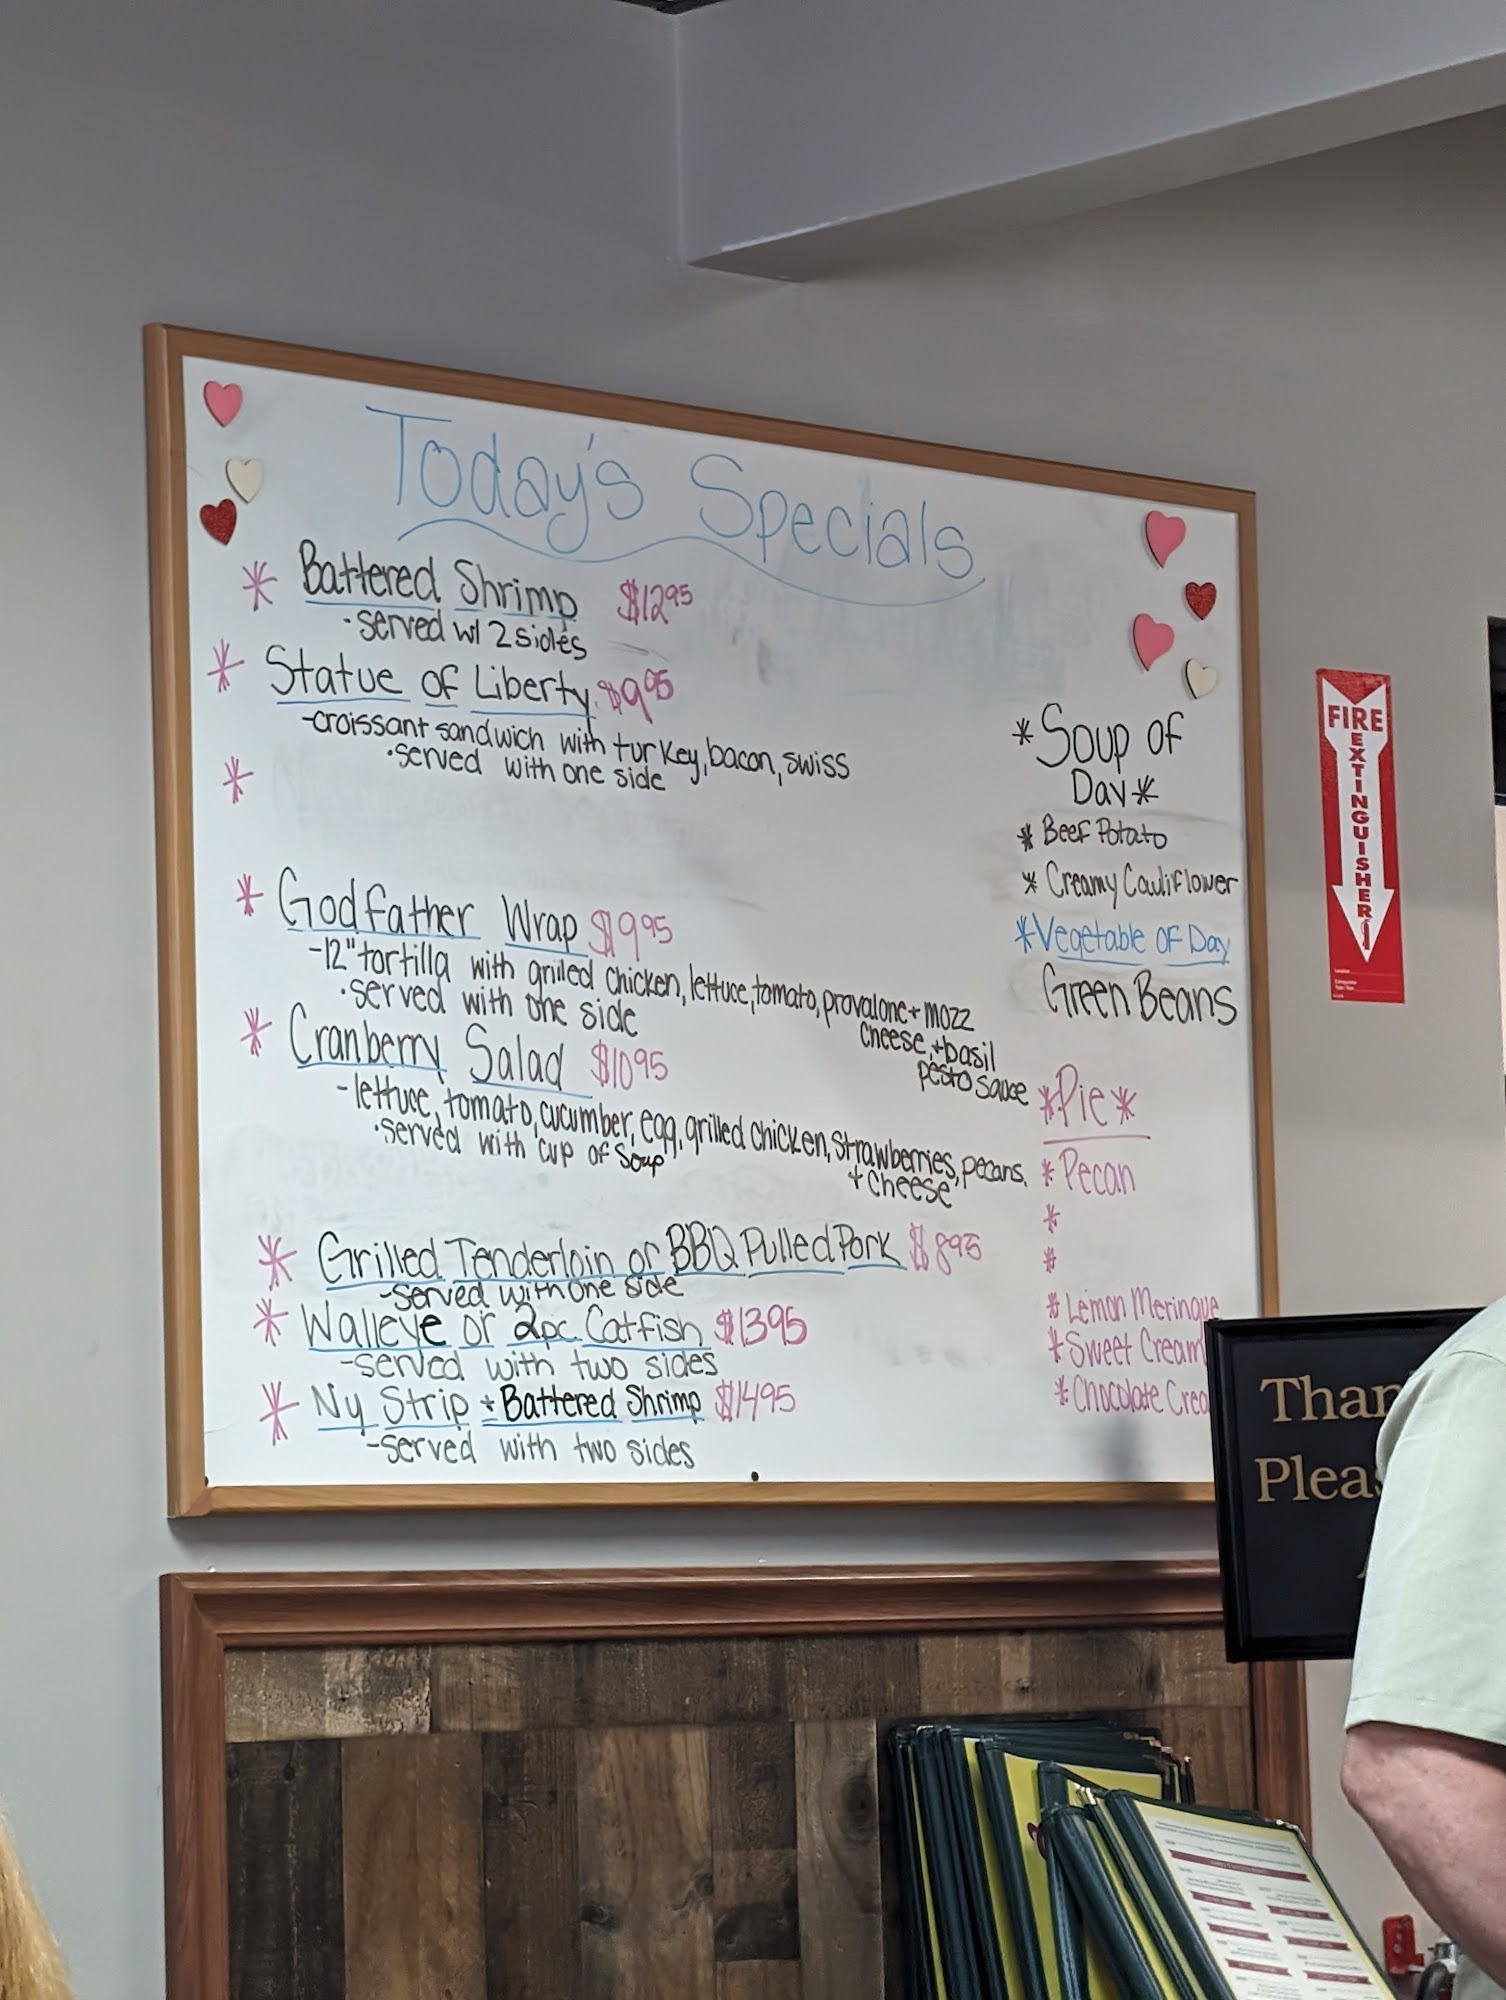 Today's Specials
* Battered Shrimp $12.95
• served w/ 2 sides
* Statue of Liberty $9.95
- croissant sandwich with turkey, bacon, swiss
• served with one side
*
* Godfather Wrap $9.95
- 12" tortilla with grilled chicken, lettuce, tomato, provalone + mozz
cheese, + basil
pesto sauce
• served with one side
* Cranberry Salad $10.95
- lettuce, tomato, cucumber, egg, grilled chicken, strawberries, pecans,
+ cheese
• served with cup of soup
* Grilled Tenderloin or BBQ Pulled Pork $8.95
- served with one side
* Walleye or 2pc. Catfish $13.95
- served with two sides
* Ny Strip + Battered Shrimp $14.95
- served with two sides
* Soup of
Day *
* Beef Potato
* Creamy Cauliflower
* Vegetable of Day
Green Beans
* Pie *
* Pecan
*
*
* Lemon Meringue
* Sweet Cream
* Chocolate Crea
FIRE
EXTINGUISHER
Than
Pleas